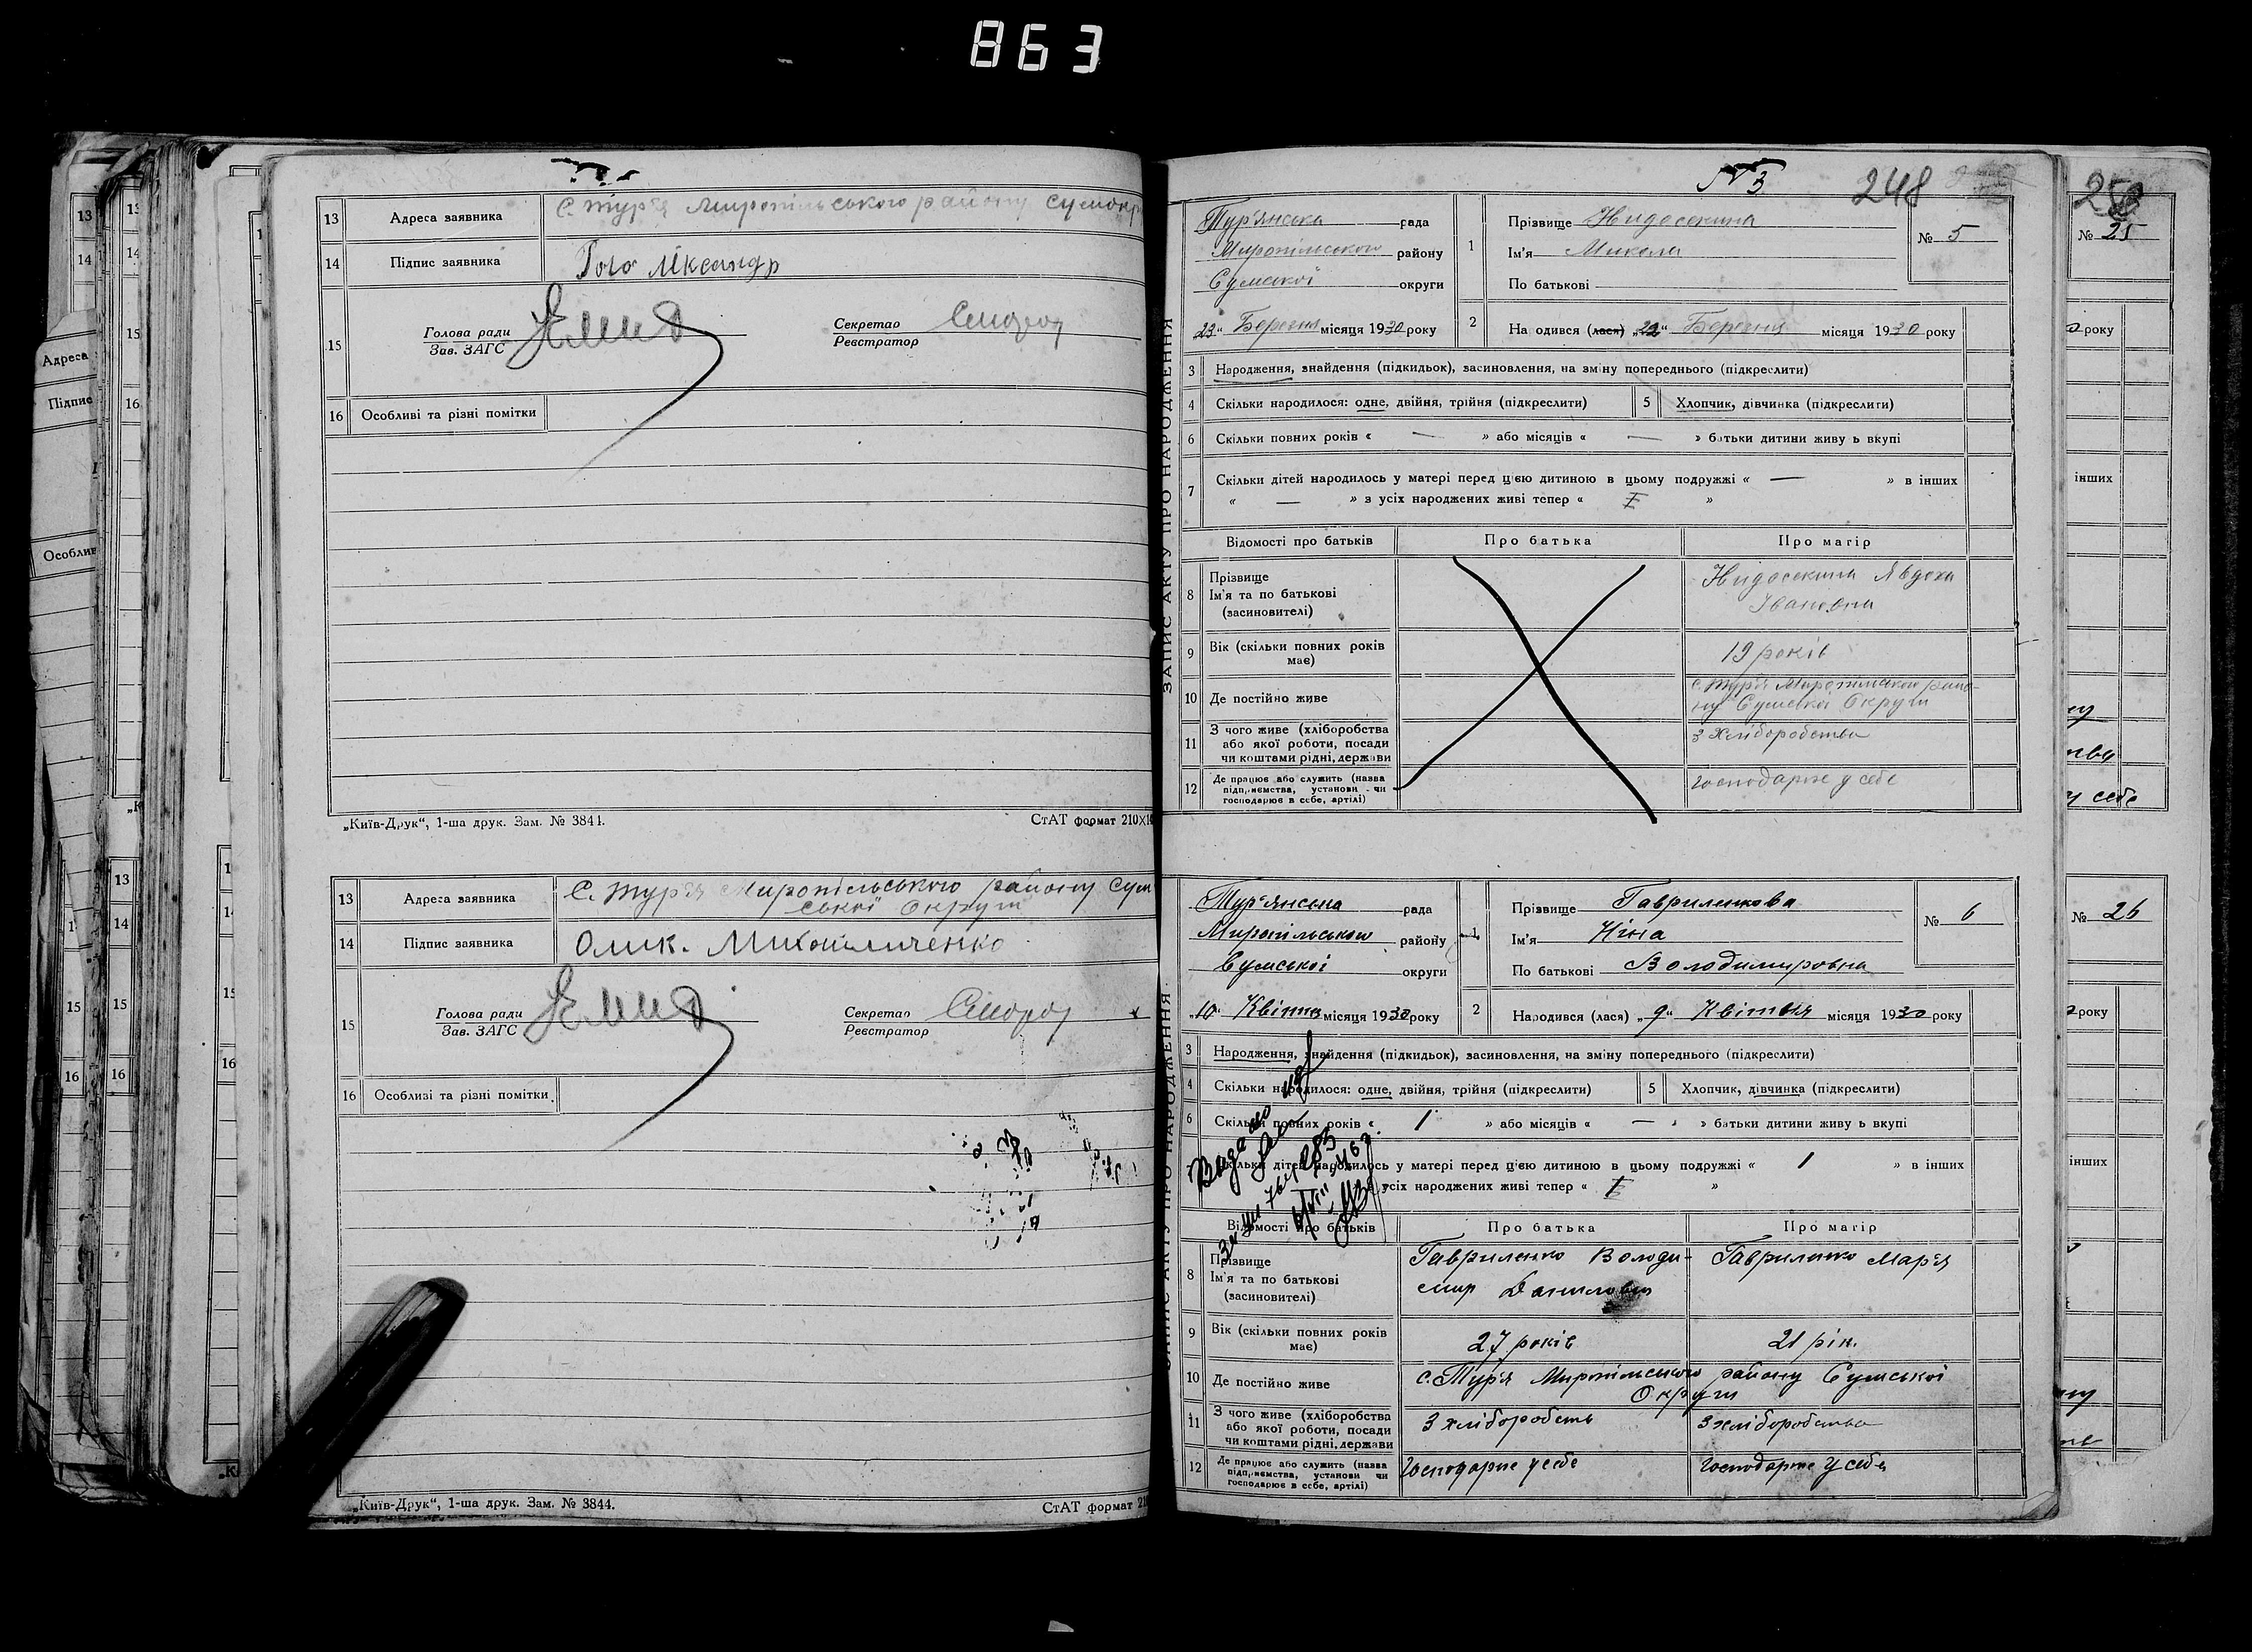 863
13 Адреса заявника С. Тур'я Миропільського району Сумокр
14 Підпис заявника
15 Голова ради
Зав. ЗАГС
Секретар
Реєстратор
16 Особливі та різні помітки
„Київ-Друк“, 1-ша друк. Зам. № 3844. СтАТ формат 210×1
13 Адреса заявника С. Тур'я Миропільського району Сум
ської Округи
14 Підпис заявника Олик. Михайличенко
15 Голова ради
Зав. ЗАГС
Секретар
Реєстратор
16 Особливі та різні помітки
„Київ-Друк“, 1-ша друк. Зам. № 3844. СтАТ формат 21
№ 3 248
ЗАПИС АКТУ ПРО НАРОДЖЕННЯ
Тур'янська рада
Миропільського району
Сумської округи
„23“ Березня місяця 1930 року
1 Прізвище Нидосекина
Ім'я Микола
По батькові
№ 5
2 На одився (лася) „22“ Березня місяця 1930 року
3 Народження, знайдення (підкидьок), засиновлення, на зміну попереднього (підкреслити)
4 Скільки народилося: одне, двійня, трійня (підкреслити) 5 Хлопчик, дівчинка (підкреслити)
6 Скільки повних років « — » або місяців « — » батьки дитини живу ь вкупі
7 Скільки дітей народилось у матері перед цією дитиною в цьому подружжі « — » в інших
« — » з усіх народжених живі тепер « I »
Відомості про батьків Про батька Про матір
8 Прізвище
Ім'я та по батькові
(засиновителі)
Нидосекина Явдоха
Івановна
9 Вік (скільки повних років має) 19 років
10 Де постійно живе с. Тур'я Миропільського райо-
ну Сумської Округи
11 З чого живе (хліборобства
або якої роботи, посади
чи коштами рідні, держави
З хліборобства
12 Де працює або служить (назва
підприємства, установи чи
господарює в себе, артілі)
Господарює у себе
ЗАПИС АКТУ ПРО НАРОДЖЕННЯ
Тур'янська рада
Миропільського району
Сумської округи
„10“ Квітня місяця 1930 року
1 Прізвище Гавриленкова
Ім'я Ніна
По батькові Володимировна
№ 6
2 Народився (лася) „9“ Квітня місяця 1930 року
3 Народження, знайдення (підкидьок), засиновлення, на зміну попереднього (підкреслити)
4 Скільки народилося: одне, двійня, трійня (підкреслити) 5 Хлопчик, дівчинка (підкреслити)
6 Скільки повних років « 1 » або місяців « — » батьки дитини живу ь вкупі
Скільки дітей народилось у матері перед цією дитиною в цьому подружжі « 1 » в інших
усіх народжених живі тепер « I »
Відомості про батьків Про батька Про матір
8 Прізвище
Ім'я та по батькові
(засиновителі)
Гавриленко Володи-
мир Данилович
Гавриленко Мар'я
9 Вік (скільки повних років має) 27 років 21 рік.
10 Де постійно живе с. Тур'я Миропільського району Сумської
Округи
11 З чого живе (хліборобства
або якої роботи, посади
чи коштами рідні, держави
З хліборобств З хліборобства
12 Де працює або служить (назва
підприємства, установи чи
господарює в себе, артілі)
Господарює у себе Господарює у себе
№ 25
року
інших
у себе
№ 26
року
інших